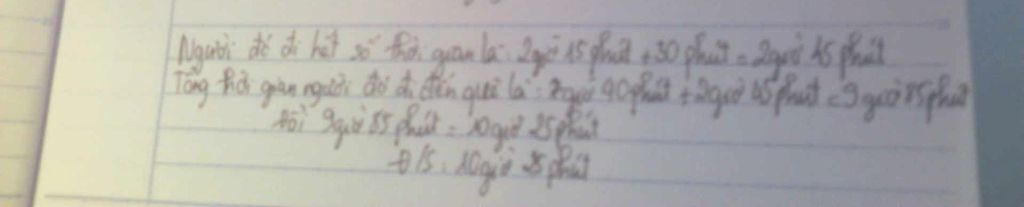 Người đó đi hết số thời gian là: 2giờ 15 phút + 30 phút = 2giờ 45 phút
Tổng thời gian người đó đi đến quê là: 7giờ 40phút + 2giờ 45phút = 9giờ 85phút
đổi 9giờ 85 phút = 10giờ 25phút
Đ/S: 10giờ 25phút